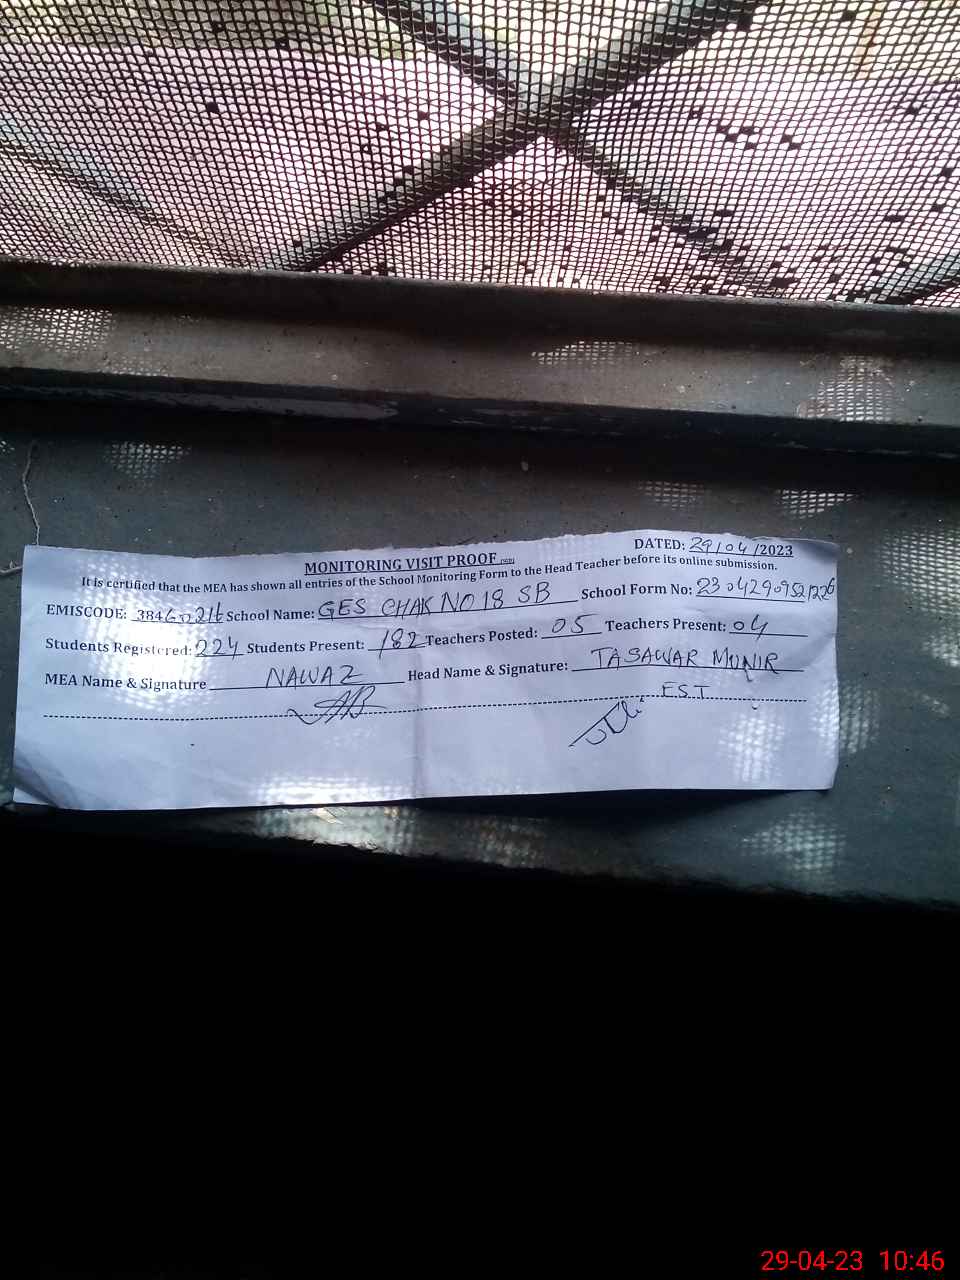 MONITORING VISIT PROOF
DATED: 29/04/2023
It is certified that the MEA has shown all entries of the School Monitoring Form to the Head Teacher before its online submission.
EMISCODE: School Name: GES CHAK NO 18 SB School Form No:
Students Registered: 224 Students Present: 182 Teachers Posted: 05 Teachers Present: 04
MEA Name & Signature NAWAZ Head Name & Signature: TASAWAR MUNIR
EST
29-04-23 10:46